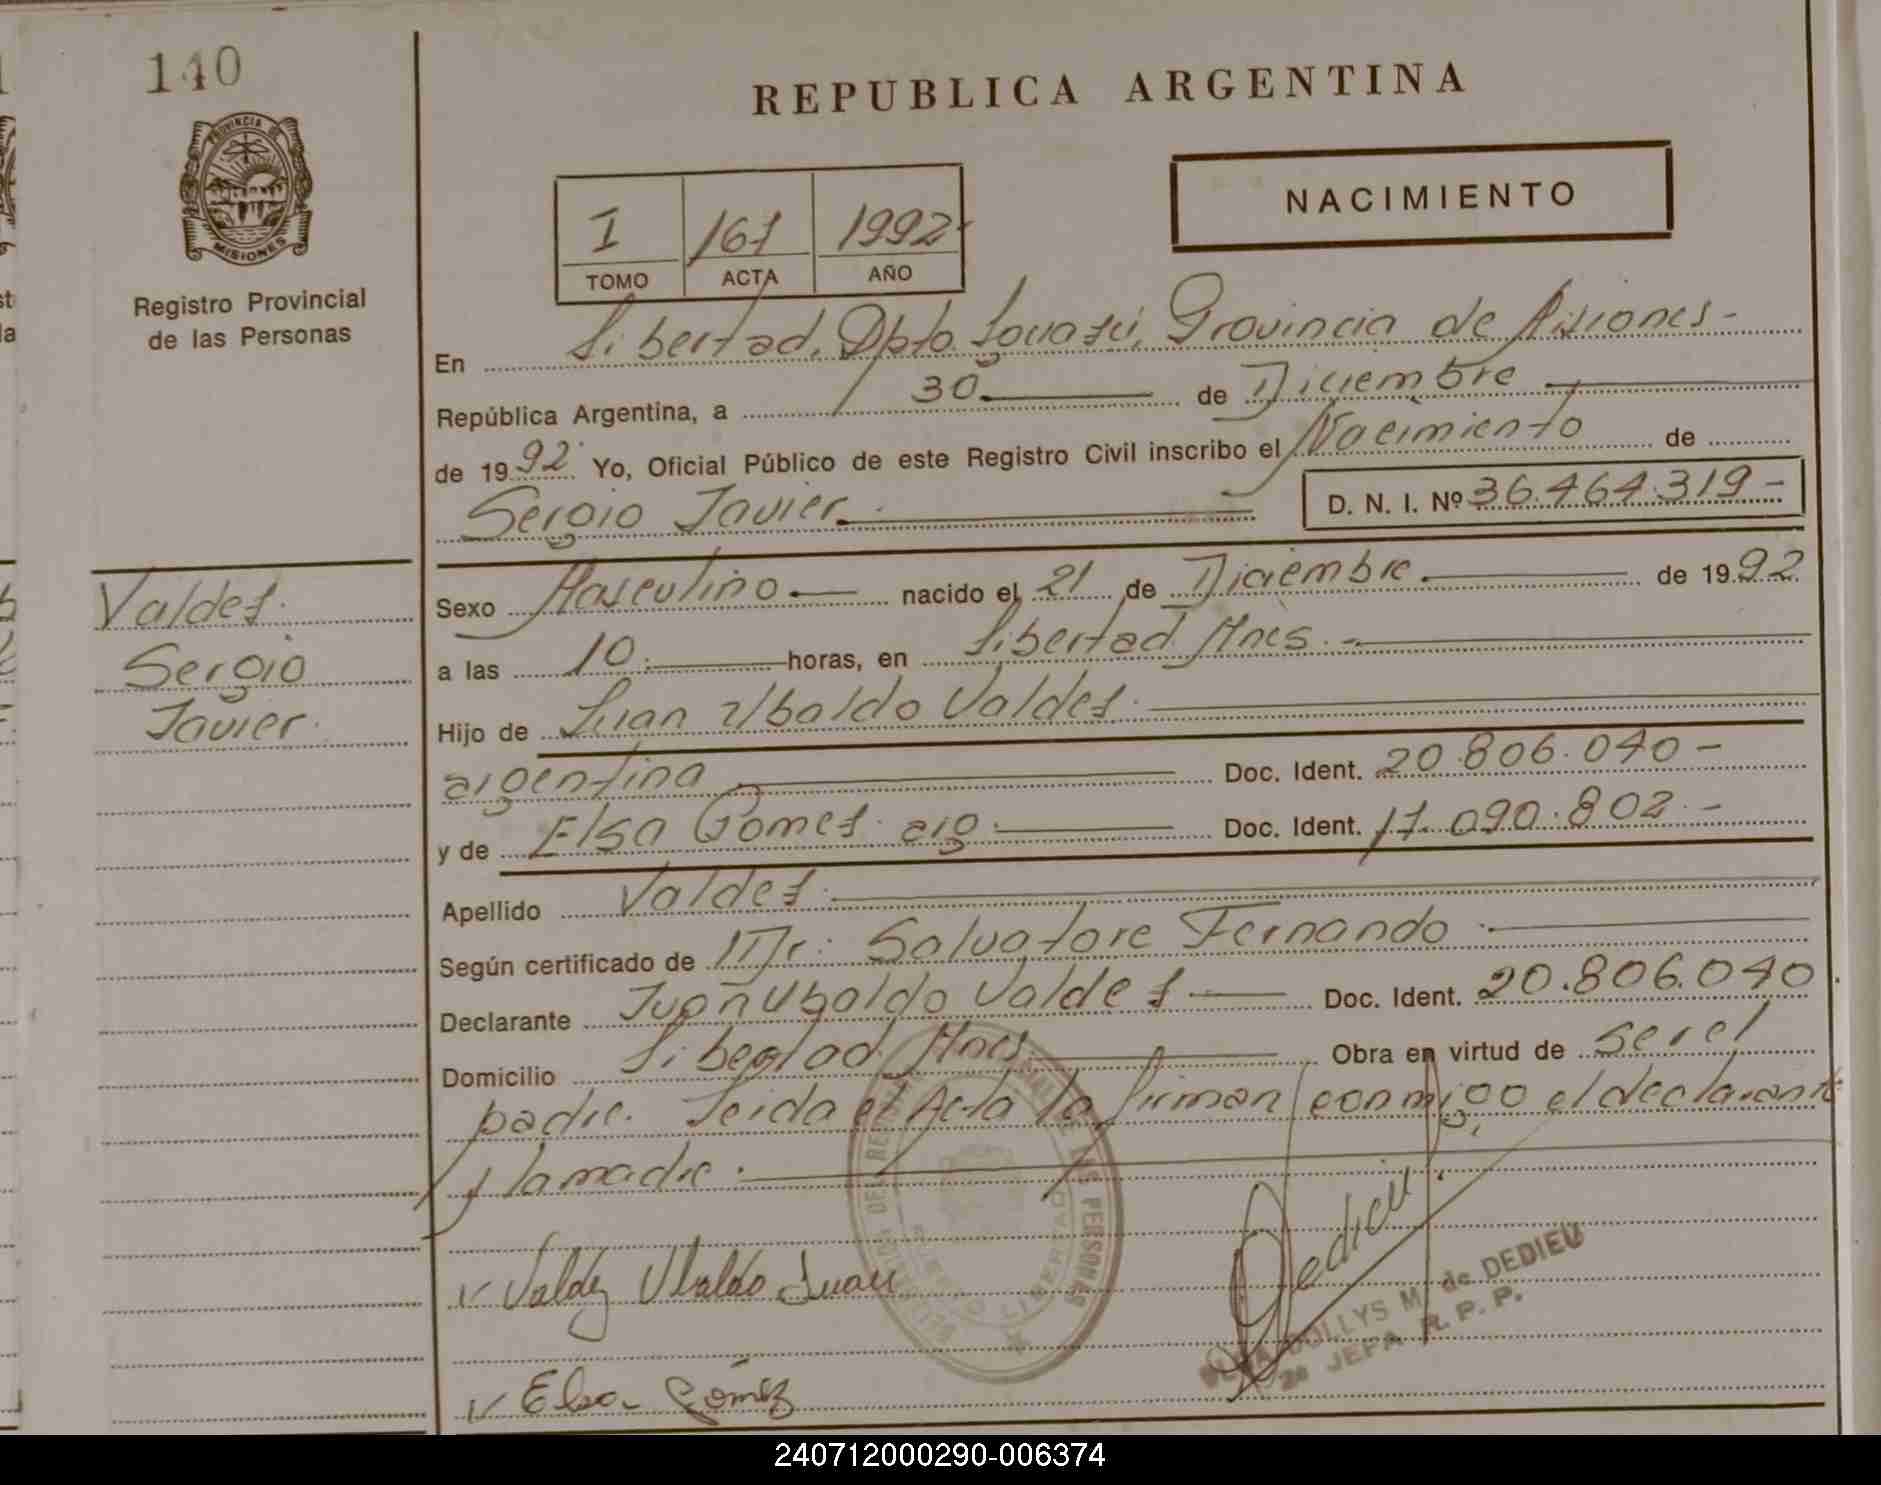 140
PROVINCIA DE
MISIONES
Registro Provincial
de las Personas
Valdes.
Sergio
Javier.
REPUBLICA ARGENTINA
NACIMIENTO
I 161 1992
TOMO ACTA AÑO
En Libertad, Dpto. Iguazú, Provincia de Misiones -
República Argentina, a 30 de Diciembre
de 1992. Yo, Oficial Público de este Registro Civil inscribo el Nacimiento de
Sergio Javier. D. N. I. Nº 36.464.319 -
Sexo Masculino nacido el 21 de Diciembre de 1992
a las 10. horas, en Libertad Mnes. -
Hijo de Juan Ubaldo Valdes.
argentina Doc. Ident. 20.806.040 -
y de Elsa Gomes. arg. Doc. Ident. 17.090.802. -
Apellido Valdes.
Según certificado de Dr. Salvatore Fernando
Declarante Juan Ubaldo Valdes Doc. Ident. 20.806.040
Domicilio Libertad Mnes. Obra en virtud de ser el
padre. Leida el Acta la firman conmigo el declarante
y la madre.
DEL REGISTRO DE LAS PERSONAS
PUERTO LIBERTAD
v Valdez Ubaldo Juan
Dedieu
DOLLYS M. de DEDIEU
JEFA R. P. P.
v Elsa Gómez
240712000290-006374